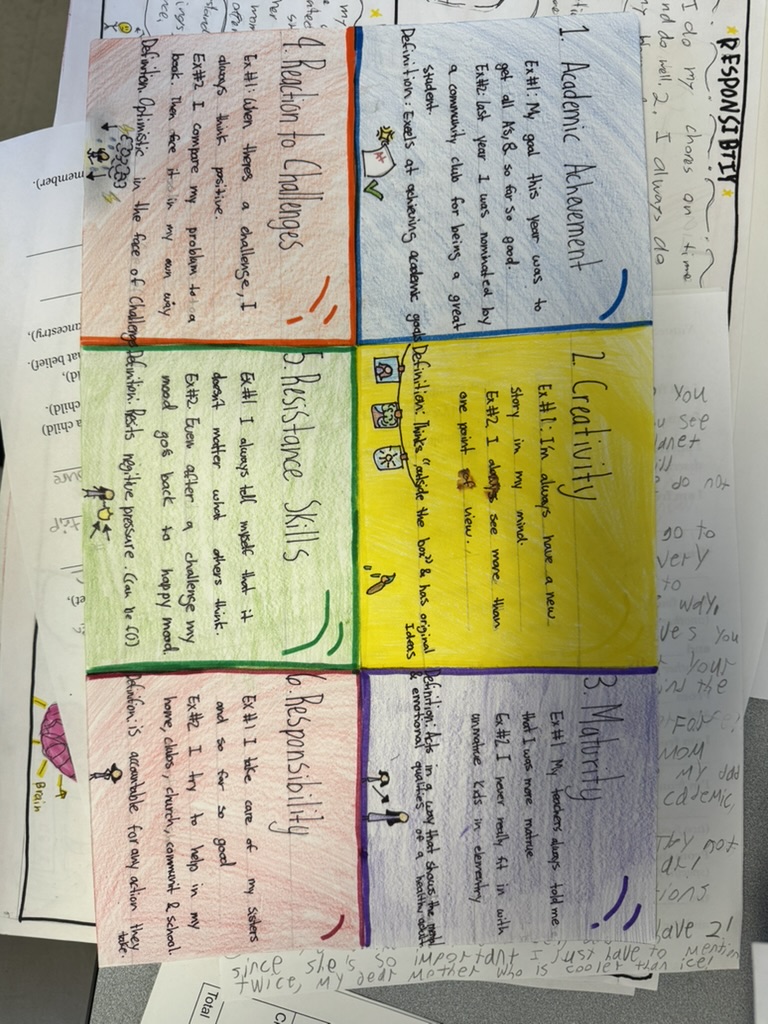 1. Academic Acheivement
Ex#1: My goal this year was to
get all A's, & so far so good.
Ex#2: last year I was nominated by
a community club for being a great
student.
Definition: Excels at achieving academic goals
2. Creativity
Ex#1: I'm always have a new
story in my mind.
Ex#2 I always see more than
one point of view.
Definition: Thinks "outside the box" & has original
Ideas
3. Maturity
Ex#1 My teachers always told me
that I was more matrue
Ex#2 I never really fit in with
unmatrue kids in elementry
Definition: Acts in a way that shows the mental
& emotional qualties of a healthy adult
4. Reaction to Challenges
Ex#1: When theres a challenge, I
always think positive.
Ex#2 I compare my problem to a
book. Then face it in my own way
Definition: Optimistic in the face of Challenge
5. Resistance Skills
Ex#1 I always tell myself that it
doesn't matter what others think.
Ex#2 Even after a challenge my
mood go's back to happy mood
Definition: Rests negitive pressure. (can be
6. Responsibility
Ex#1 I take care of my sisters
and so far so good
Ex#2 I try to help in my
home, clubs, church, communit & school.
Definition: is accountable for any action they
take.
RESPONSIBTIY
I do my chores on time
nd do well. 2. I always do
Brain
member).
ancestry),
at belief).
child).
a child)
YOU
see
lanet
do not
go to
very
to
way,
ves you
your
the
MOM
my dad
cademic,
not
ions
have 2!
since she's so important I just have to mention
twice, my dear mother who is cooler than ice!
Total